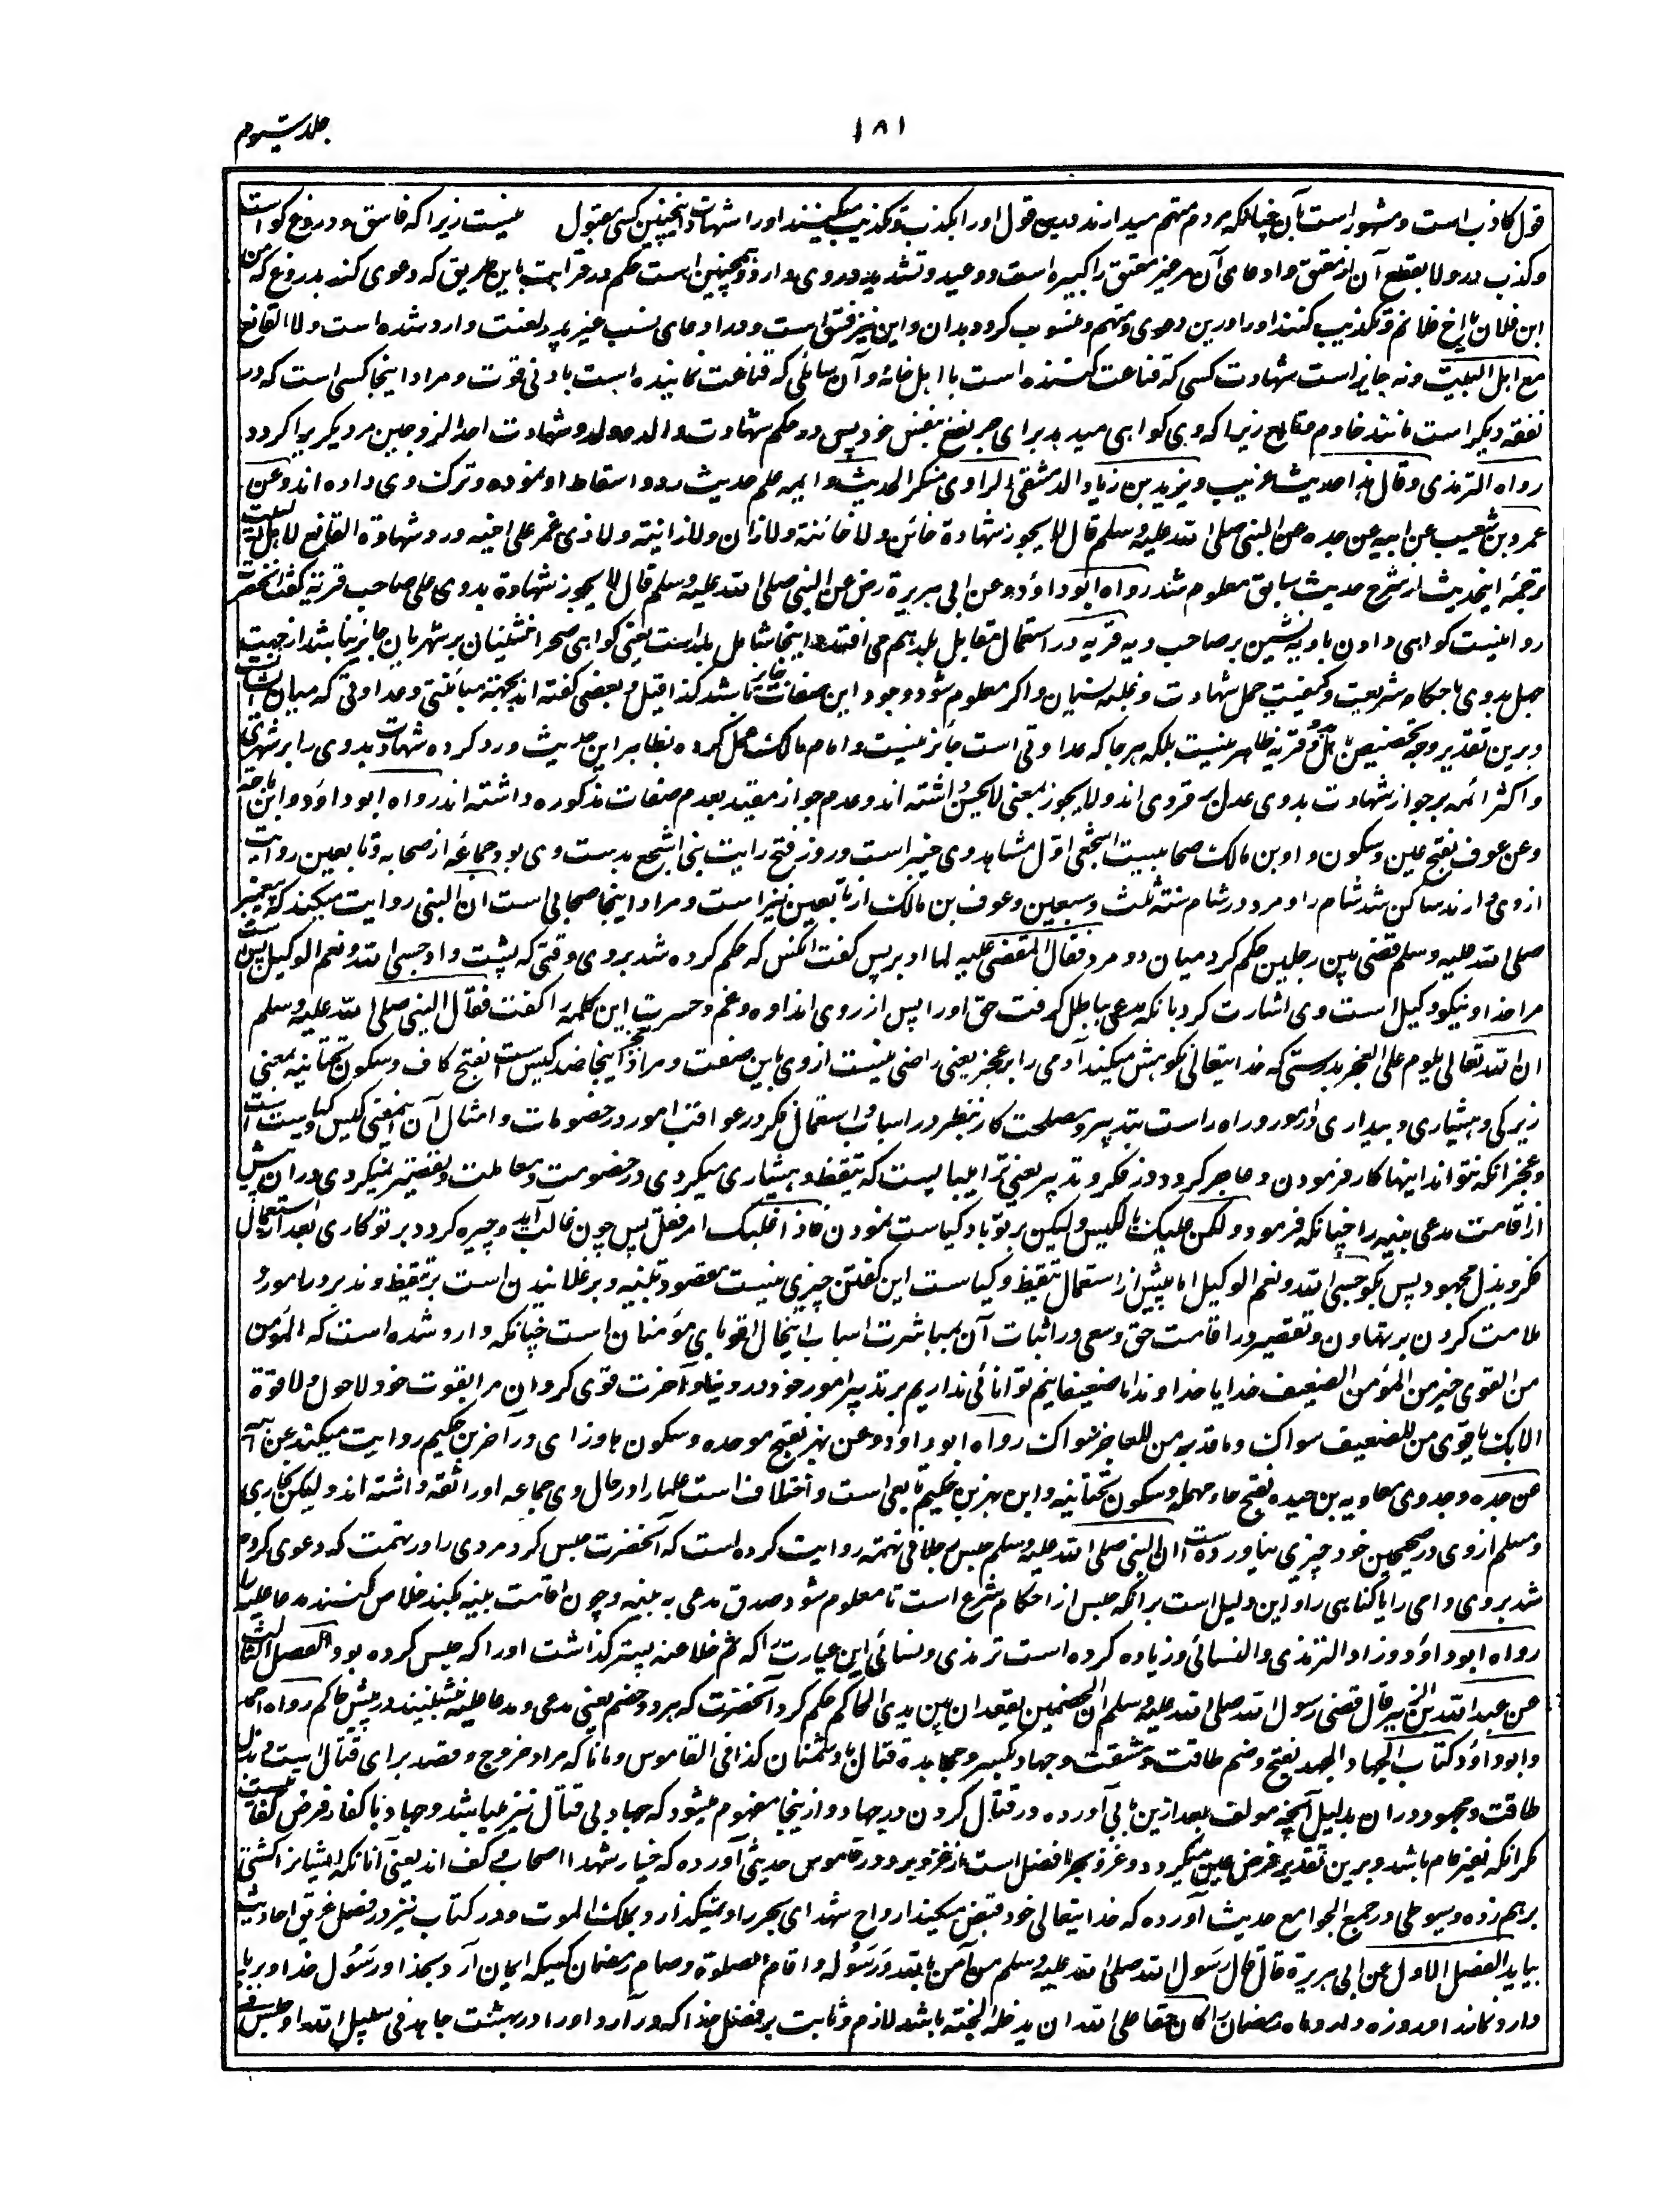 ۱۸۱
جلد سیوم
قول کاذب است و مشهور است بآن چنانکه مردم متهم میدارند درین قول اورا بکذب و تکذیب میکنند اورا شهادت اینچنین کسی مقبول نیست زیرا که فاسق و دروغ گو است
و کذب در ولا بقطع آن از معتق و ادعای آن مر غیر معتق را کبیره است و وعید و تشدید در وی وارد و همچنین است حکم در قرابت باین طریق که دعوی کند بدروغ که من
ابن فلان یا اخ فلانم و تکذیب کنند اورا درین دعوی و متهم و منسوب گردد بدان و این نیز فسق است و در ادعای نسب غیر پدر لعنت وارد شده است ولا القانع
مع اهل البیت و نه جایز است شهادت کسی که قناعت کننده است با اهل خانه و آن سائلی که قناعت نماینده است بادنی قوت و مراد اینجا کسی است که در
نفقه دیگر است مانند خادم و تابع زیرا که وی گواهی میدهد برای جر نفع بنفس خود پس در حکم شهادت والد مر ولد و شهادت احد الزوجین مر دیگریرا گردد
رواه الترمذی و قال هذا حدیث غریب و یزید بن زیاد الدمشقی الراوی منکر الحدیث و ایمه علم حدیث رد و اسقاط او نموده و ترک وی داده اند و عن
عمرو بن شعیب عن ابیه عن جده عن النبی صلی الله علیه وسلم قال لا یجوز شهادة خائن ولا خائنة ولا زان ولا زانیة ولا ذی غمر علی اخیه و رد شهادة القانع لاهل البیت
ترجمهٔ این حدیث از شرح حدیث سابق معلوم شد رواه ابو داؤد و عن ابی هریرة رض عن النبی صلی الله علیه وسلم قال لا یجوز شهادة بدوی علی صاحب قریة گفت آنحضرت
روا نیست گواهی دادن بادیه نشین بر صاحب دیه قریه در استعمال مقابل بلد هم می افتد و اینجا شامل بلد است یعنی گواهی صحرا نشینان بر شهریان جایز نباشد از جهت
جهل بدوی باحکام شریعت و کیفیت حمل شهادت و غلبه نسیان و اگر معلوم شود وجود این صفات جایز باشد کذا قیل و بعضی گفته اند بجهت مباینتی و عداوتی که میان ایشان است
و برین تقدیر وجه تخصیص باهل بدو و قریه ظاهر نیست بلکه هر جا که عداوتی است جائز نیست و امام مالک عمل کرده بظاهر این حدیث و رد کرده شهادت بدوی را بر شهری
و اکثر ائمه بر جواز شهادت بدوی عدل بر قروی اند و لا یجوز بمعنی لا یحسن داشته اند و عدم جواز مقید بعدم صفات مذکوره داشته اند رواه ابو داؤد و ابن ماجة
و عن عوف بفتح عین و سکون واو بن مالک صحابیست اشجعی اول مشاهد وی خیبر است و روز فتح رایت بنی اشجع بدست وی بود جماعه از صحابه و تابعین روایت
از وی دارند ساکن شد شام را و مرد در شام سنة ثلث و سبعین و عوف بن مالک از تابعین نیز است و مراد اینجا صحابی است ان النبی روایت میکند که پیغمبر
صلی الله علیه وسلم قضی بین رجلین حکم کرد میان دو مرد فقال المقضی علیه لما ادبر پس گفت آنکس که حکم کرده شد بر وی وقتی که پشت داد حسبی الله و نعم الوکیل بس است
مرا خدا و نیکو وکیل است وی اشارت کرد بآنکه مدعی بباطل گرفت حق اورا پس از روی اندوه و غم و حسرت این کلمه را گفت فقال النبی صلی الله علیه وسلم
ان الله تعالی یلوم علی العجز بدرستی که خدایتعالی نکوهش میکند آدمی را بر عجز یعنی راضی نیست از وی باین صفت و مراد بعجز اینجا ضد کیس است بفتح کاف و سکون تحتانیه بمعنی
زیرکی و هشیاری و بیداری در امور و راه راست بتدبیر و مصلحت کار بنظر در اسباب و استعمال فکر در عواقب امور در خصومات و امثال آن همینی کیس و کیاست است
و عجز آنکه نتواند اینها کار فرمودن و عاجر گردد در فکر و تدبیر یعنی ترا میبایست که تیقظ و هشیاری میکردی در خصومت و معاملت و تقصیر نمیکردی در ان پیش
از اقامت مدعی بینه را چنانکه فرمود و لکن علیک بالکیس و لیکن بر تو باد کیاست نمودن فاذا غلبک امر فقل پس چون غالب آید و چیره گردد بر تو کاری بعد از استعمال
فکر و بذل مجهود پس بگو حسبی الله و نعم الوکیل اما پیش از استعمال تیقظ و کیاست این گفتن چیزی نیست مقصود تنبیه و برغلانیدن است بر تیقظ و تدبر در امور و
ملامت کردن بر تهاون و تقصیر در اقامت حق و سعی در اثبات آن بمباشرت اسباب اینحال اقویای مؤمنان است چنانکه وارد شده است که المؤمن
من القوی خیر من المؤمن الضعیف خدایا خداوندا ما ضعیفانیم توانائی نداریم بر تدبیر امور خود در دنیا و آخرت قوی گردان مرا بقوت خود لا حول ولا قوة
الا بک یا قوی من للضعیف سواک و یا قدیر من للعاجز سواک رواه ابو داؤد و عن بهز بفتح موحده و سکون ها و زای در آخر بن حکیم روایت میکند عن ابیه
عن جده و جد وی معاویه بن حیده بفتح حاء مهمله و سکون تحتانیه و این بهز بن حکیم تابعی است و اختلاف است علما را در حال وی جماعه اورا ثقه داشته اند و لیکن بخاری
و مسلم از وی در صحیحین خود چیزی نیاورده است ان النبی صلی الله علیه وسلم حبس رجلا فی تهمة روایت کرده است که آنحضرت حبس کرد مردی را در تهمت که دعوی کرده
شد بر وی وامی را یا گناهی را و این دلیل است بر آنکه حبس از احکام شرع است تا معلوم شود صدق مدعی به بینه و چون اقامت بینه نکند خلاص کنند مدعا علیه را
رواه ابو داؤد و زاد الترمذی و النسائی و زیاده کرده است ترمذی و نسائی این عبارت را که ثم خلا عنه پستر گذاشت اورا که حبس کرده بود الفصل الثالث
عن عبد الله بن الزبیر قال قضی رسول الله صلی الله علیه وسلم ان الخصمین یقعدان بین یدی الحاکم حکم کرد آنحضرت که هر دو خصم یعنی مدعی و مدعا علیه بنشینند در پیش حاکم رواه احمد
و ابو داؤد کتاب الجهاد الجهد بفتح و ضم طاقت و مشقت و جهاد بکسر و مجاهدة قتال با دشمنان کذا فی القاموس و مانا که مراد خروج و قصد برای قتال است و بذل
طاقت و مجهود در ان بدلیل آنچه مولف بعد ازین بابی آورده در قتال کردن در جهاد و از ینجا مفهوم میشود که جهاد بی قتال نیز میباشد و جهاد با کفار فرض کفایت است
مگر آنکه نفیر عام باشد و برین تقدیر فرض عین میگردد و غزو بحر افضل است از غزو بر و در قاموس حدیثی آورده که خیار شهدا اصحاب کف اند یعنی آنانکه ایشانرا کشتی
برهم زده و سیوطی در جمع الجوامع حدیث آورده که خدایتعالی خود قبض میکند ارواح شهدای بحر را و نمیگذارد بملک الموت و در کتاب نیز در فضل غریق احادیث
بیاید الفصل الاول عن ابی هریرة قال قال رسول الله صلی الله علیه وسلم من آمن بالله و رسوله و اقام الصلوة و صام رمضان کسیکه ایمان آرد بخدا و رسول خدا و برپا
دارد نماز را و روزه دارد ماه رمضان را کان حقا علی الله ان یدخله الجنة باشد لازم و ثابت بر فضل خدا که در آرد اورا در بهشت جاهد فی سبیل الله او جلس فی